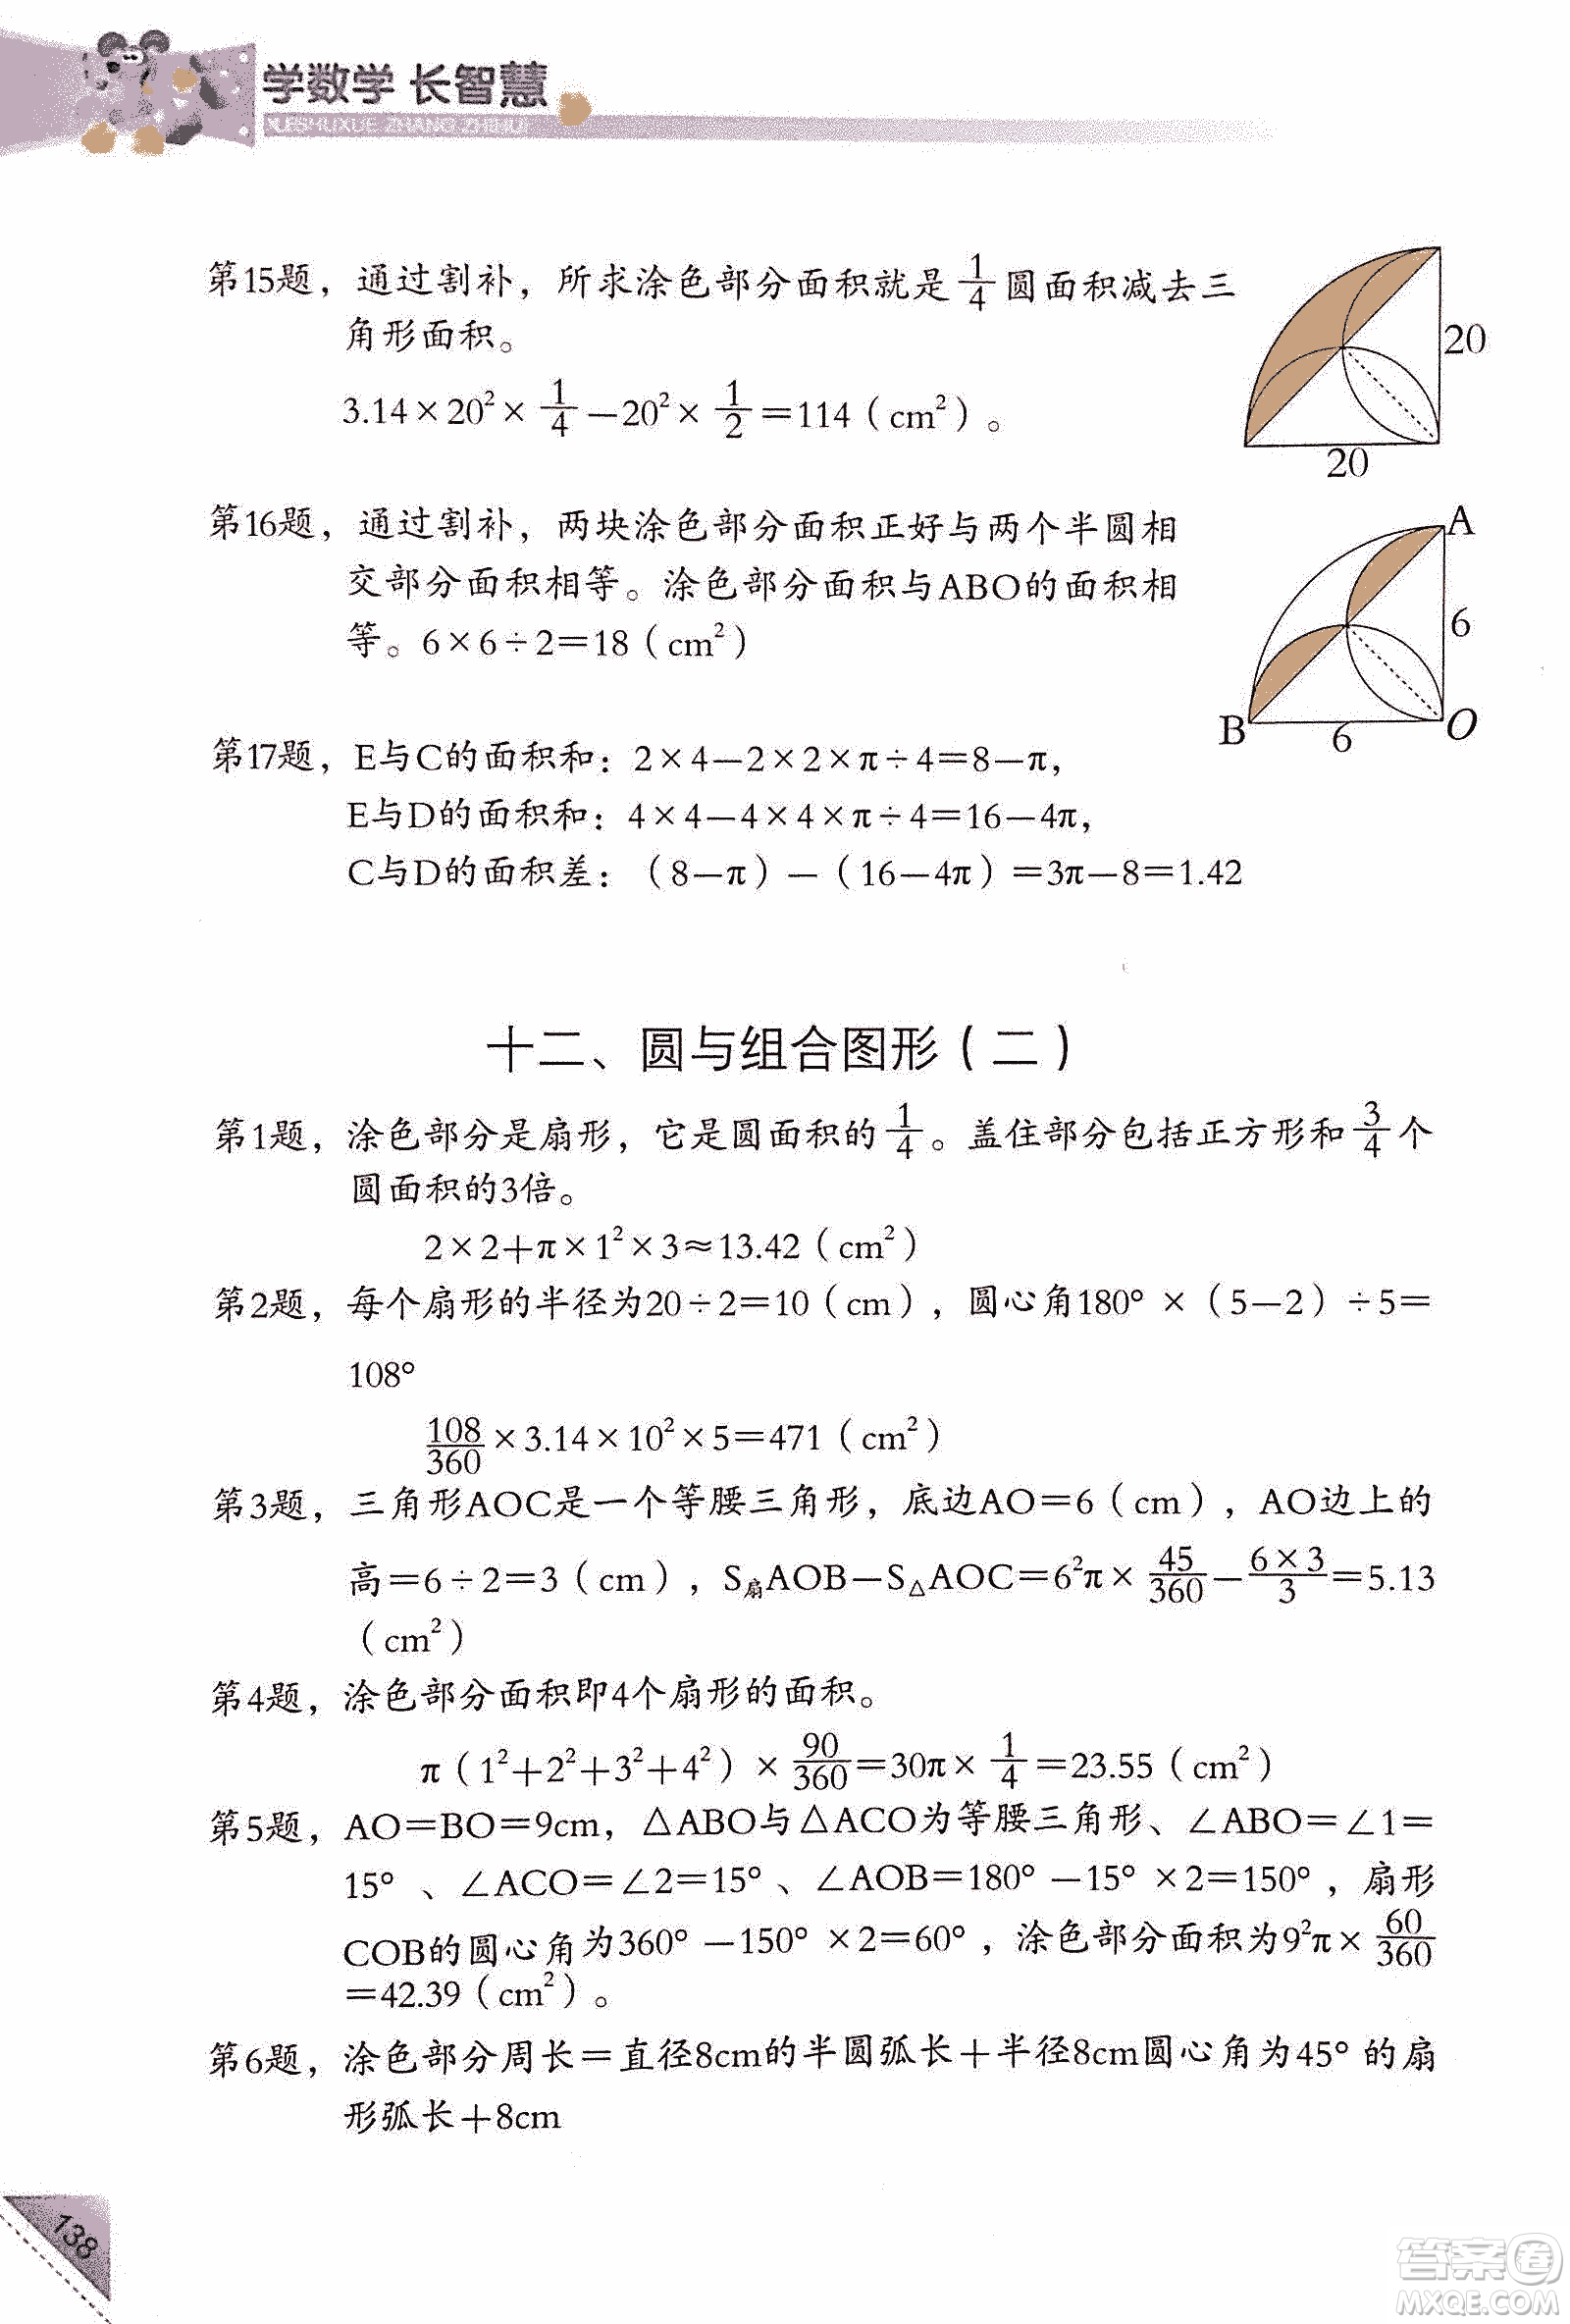 学数学 长智慧
XUESHUXUE ZHANG ZHIHUI
第15题，通过割补，所求涂色部分面积就是1/4圆面积减去三
角形面积。
3.14×20²×1/4－20²×1/2＝114（cm²）。
20
20
第16题，通过割补，两块涂色部分面积正好与两个半圆相
交部分面积相等。涂色部分面积与ABO的面积相
等。6×6÷2＝18（cm²）
A
6
B
6
O
第17题，E与C的面积和：2×4－2×2×π÷4＝8－π，
E与D的面积和：4×4－4×4×π÷4＝16－4π，
C与D的面积差：（8－π）－（16－4π）＝3π－8＝1.42
十二、圆与组合图形（二）
第1题，涂色部分是扇形，它是圆面积的1/4。盖住部分包括正方形和3/4个
圆面积的3倍。
2×2＋π×1²×3≈13.42（cm²）
第2题，每个扇形的半径为20÷2＝10（cm），圆心角180°×（5－2）÷5＝
108°
108/360×3.14×10²×5＝471（cm²）
第3题，三角形AOC是一个等腰三角形，底边AO＝6（cm），AO边上的
高＝6÷2＝3（cm），S扇AOB－S△AOC＝6²π×45/360－6×3/3＝5.13
（cm²）
第4题，涂色部分面积即4个扇形的面积。
π（1²＋2²＋3²＋4²）×90/360＝30π×1/4＝23.55（cm²）
第5题，AO＝BO＝9cm，△ABO与△ACO为等腰三角形、∠ABO＝∠1＝
15°、∠ACO＝∠2＝15°、∠AOB＝180°－15°×2＝150°，扇形
COB的圆心角为360°－150°×2＝60°，涂色部分面积为9²π×60/360
＝42.39（cm²）。
第6题，涂色部分周长＝直径8cm的半圆弧长＋半径8cm圆心角为45°的扇
形弧长＋8cm
138
答案卷
MXQE.COM